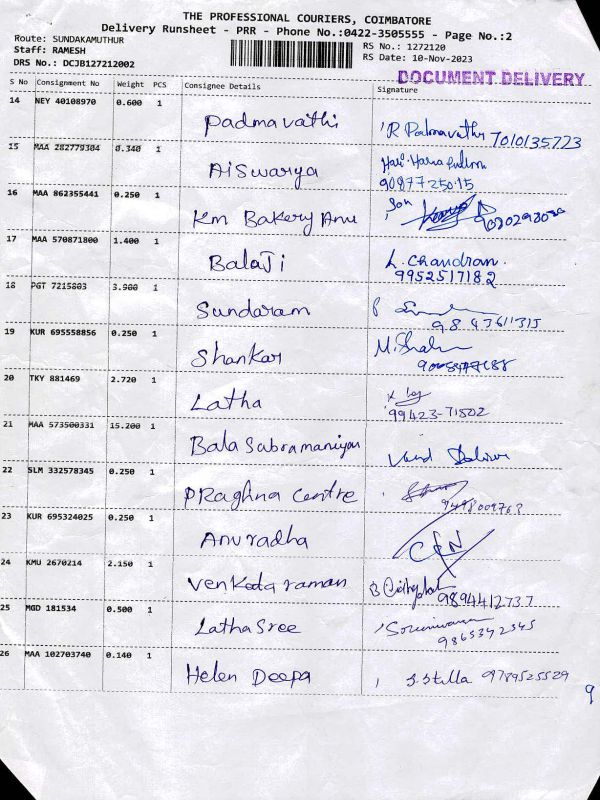 THE PROFESSIONAL COURIERS, COIMBATORE
Delivery Runsheet - PRR - Phone No.:0422-3505555 - Page No.:2
Route: SUNDAKAMUTHUR
RS No.: 1272120
Staff: RAMESH
RS Date: 10-Nov-2023
DRS No.: DCJB127212002
DOCUMENT DELIVERY
S No Consignment No Weight PCS Consignee Details Signature
14 NEY 40108970 0.600 1
Padmavathi R Padmavathi 7010135723
15 MAA 282779304 0.340 1
Aiswarya
90877 250.15
16 MAA 862355441 0.250 1
Km Bakery Anu Son
17 MAA 570871800 1.400 1
BalaJi L. Chandran.
9952517182
18 PGT 7215803 3.900 1
Sundaram
19 KUR 695558856 0.250 1
Shankar
20 TKY 881469 2.720 1
Latha
99423-71502
21 MAA 573500331 15.200 1
Bala Sabramaniyan
22 SLM 332578345 0.250 1
PRaghna Centre
9498009763
23 KUR 695324025 0.250 1
Anuradha
24 KMU 2670214 2.150 1
Venkata raman 9894412737
25 MGD 181534 0.500 1
LathaSree
9865342345
26 MAA 102703740 0.140 1
Helen Deepa S. Stella 9789525529
9